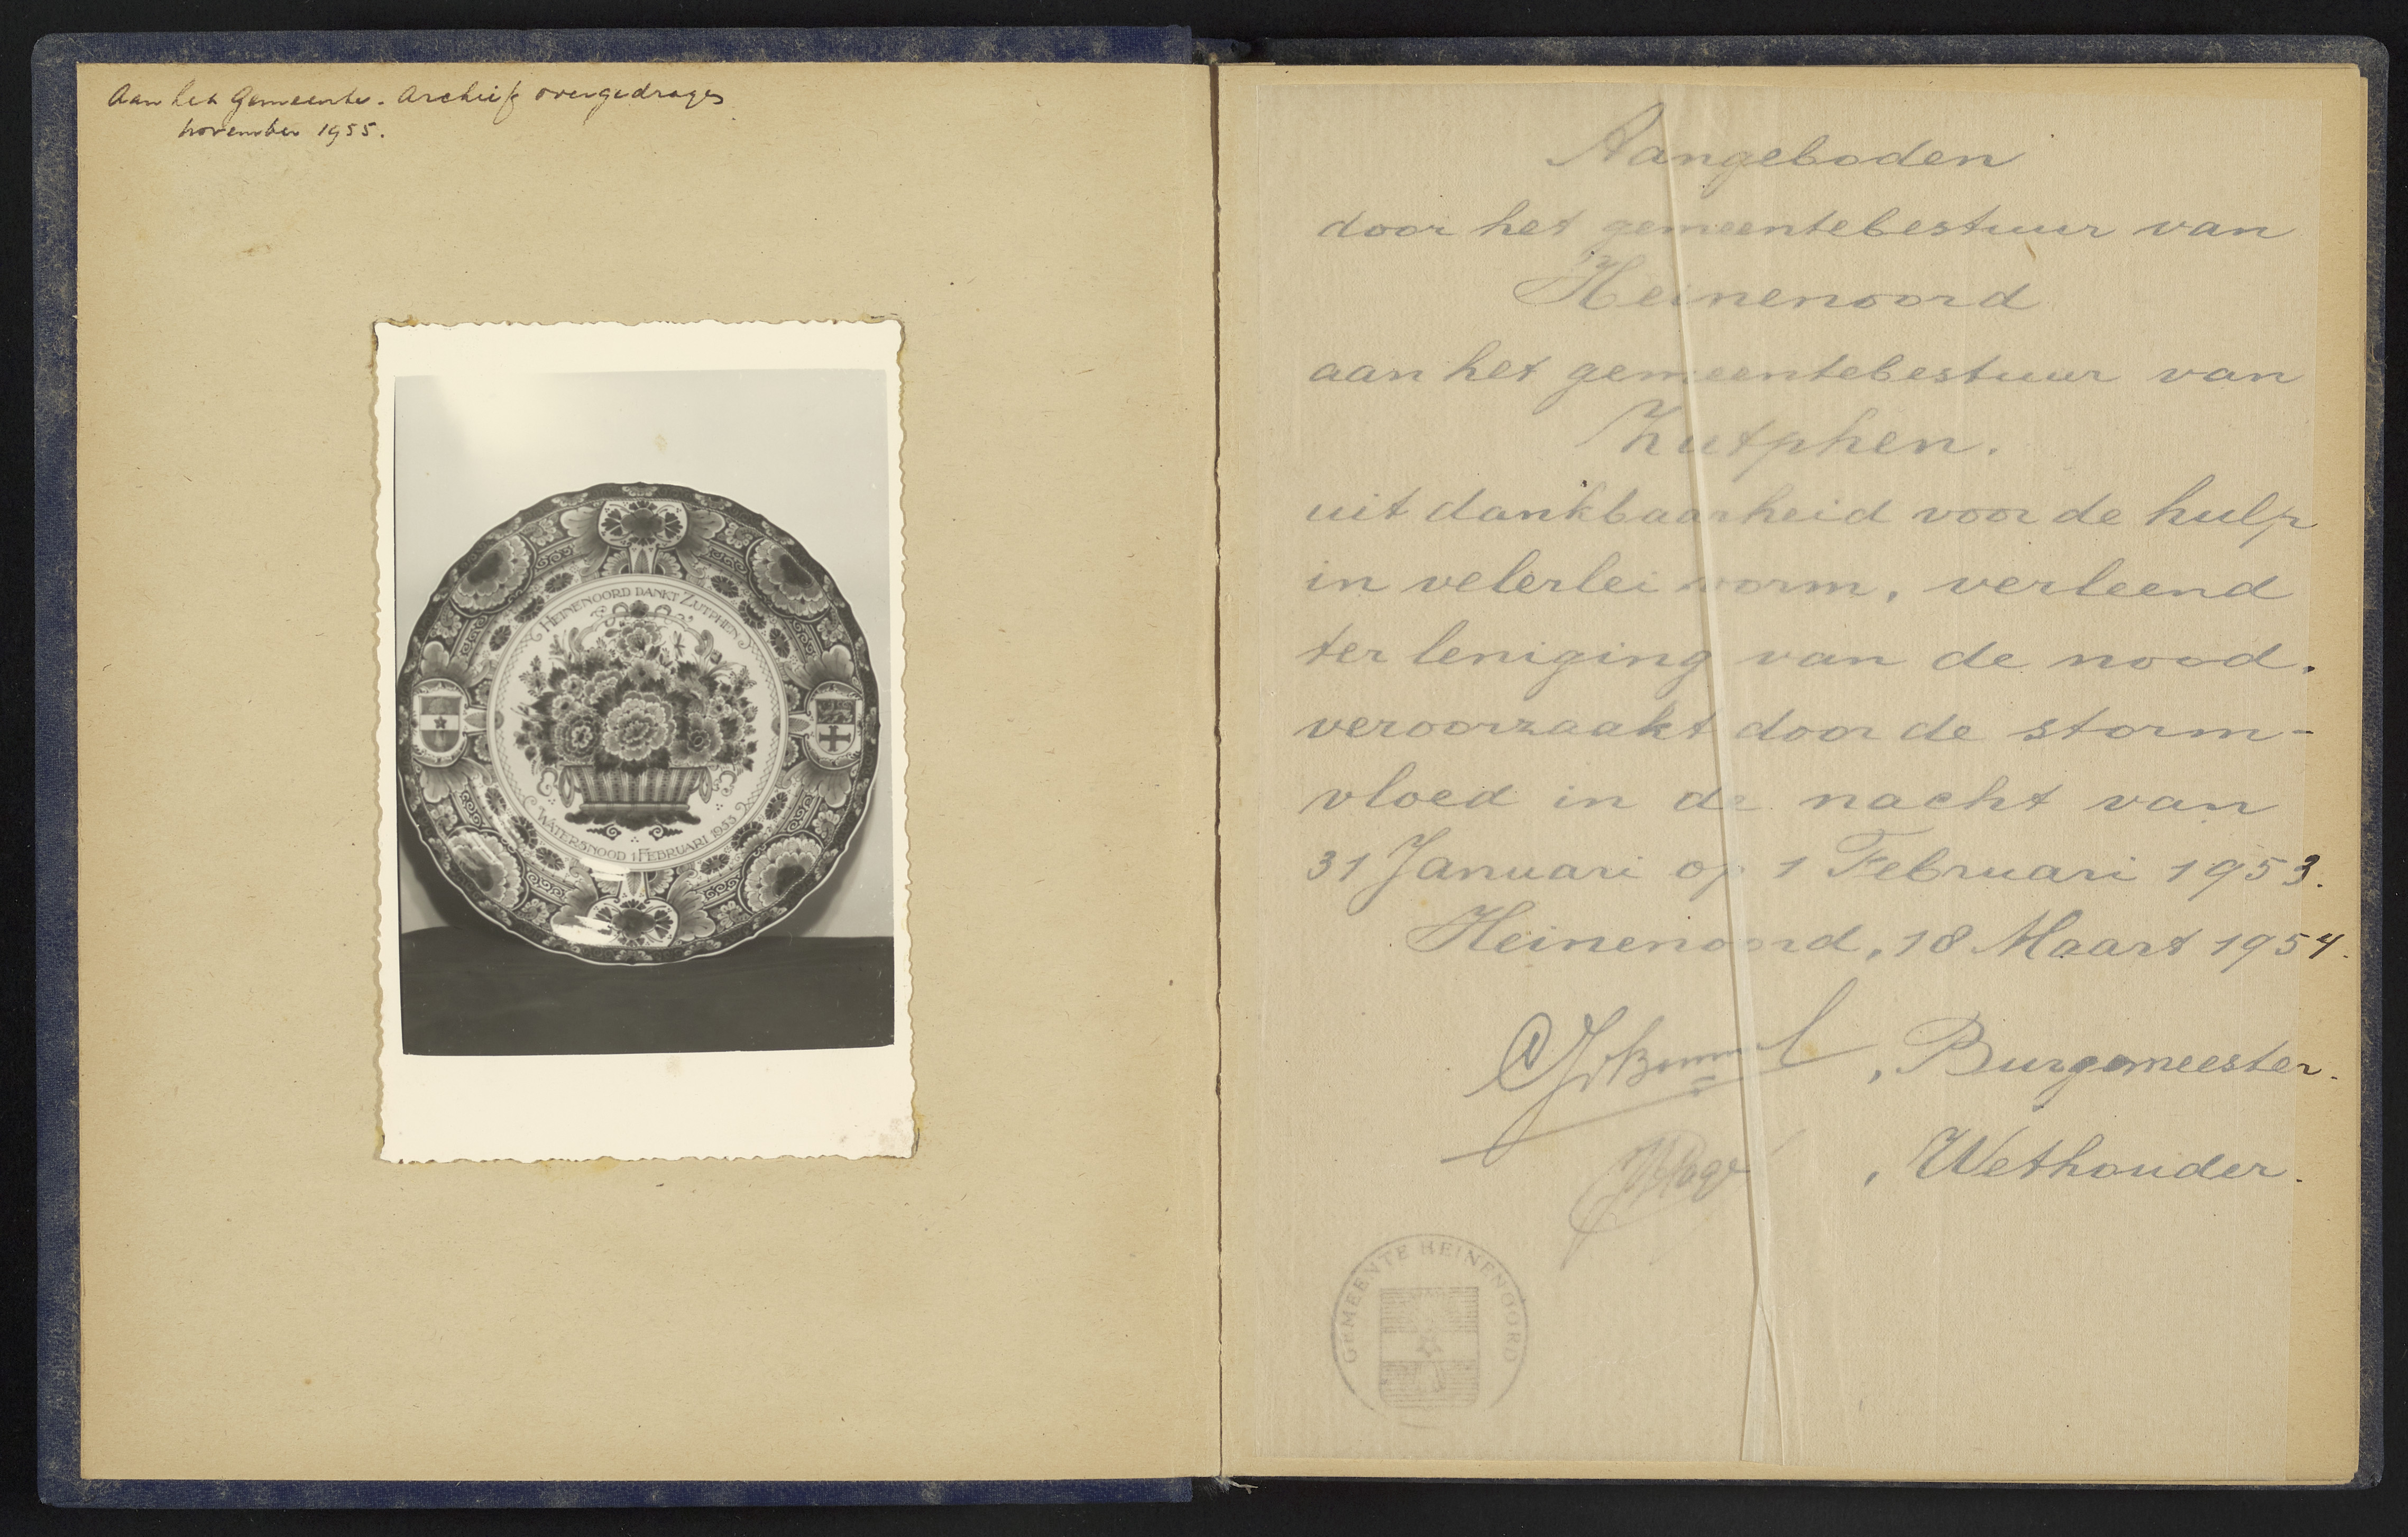 Aan het Gemeente-Archief overgedragen
november 1955.
HEINENOORD DANKT ZUTPHEN
WATERSNOOD 1 FEBRUARI 1953
Aangeboden
door het gemeentebestuur van
Heinenoord
aan het gemeentebestuur van
Zutphen.
uit dankbaarheid voor de hulp
in velerlei vorm, verleend
ter leniging van de nood,
veroorzaakt door de storm-
vloed in de nacht van
31 Januari op 1 Februari 1953.
Heinenoord, 18 Maart 1954.
, Burgemeester.
, Wethouder.
GEMEENTE HEINENOORD